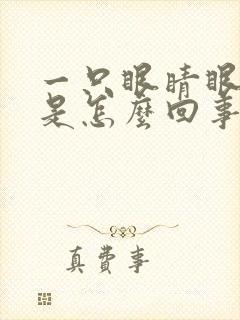 一只眼睛眼
是怎麼回事
真費事